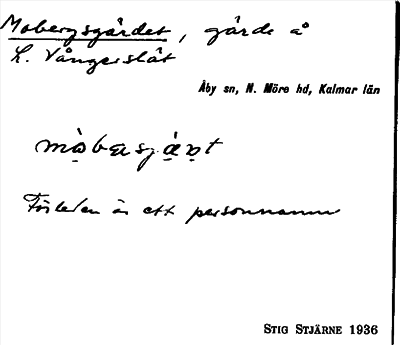 Mobergsgärdet, gärde å
L. Vångerslät
Åby sn, N. Möre hd, Kalmar län
Förleden är ett personnamn
STIG STJÄRNE 1936